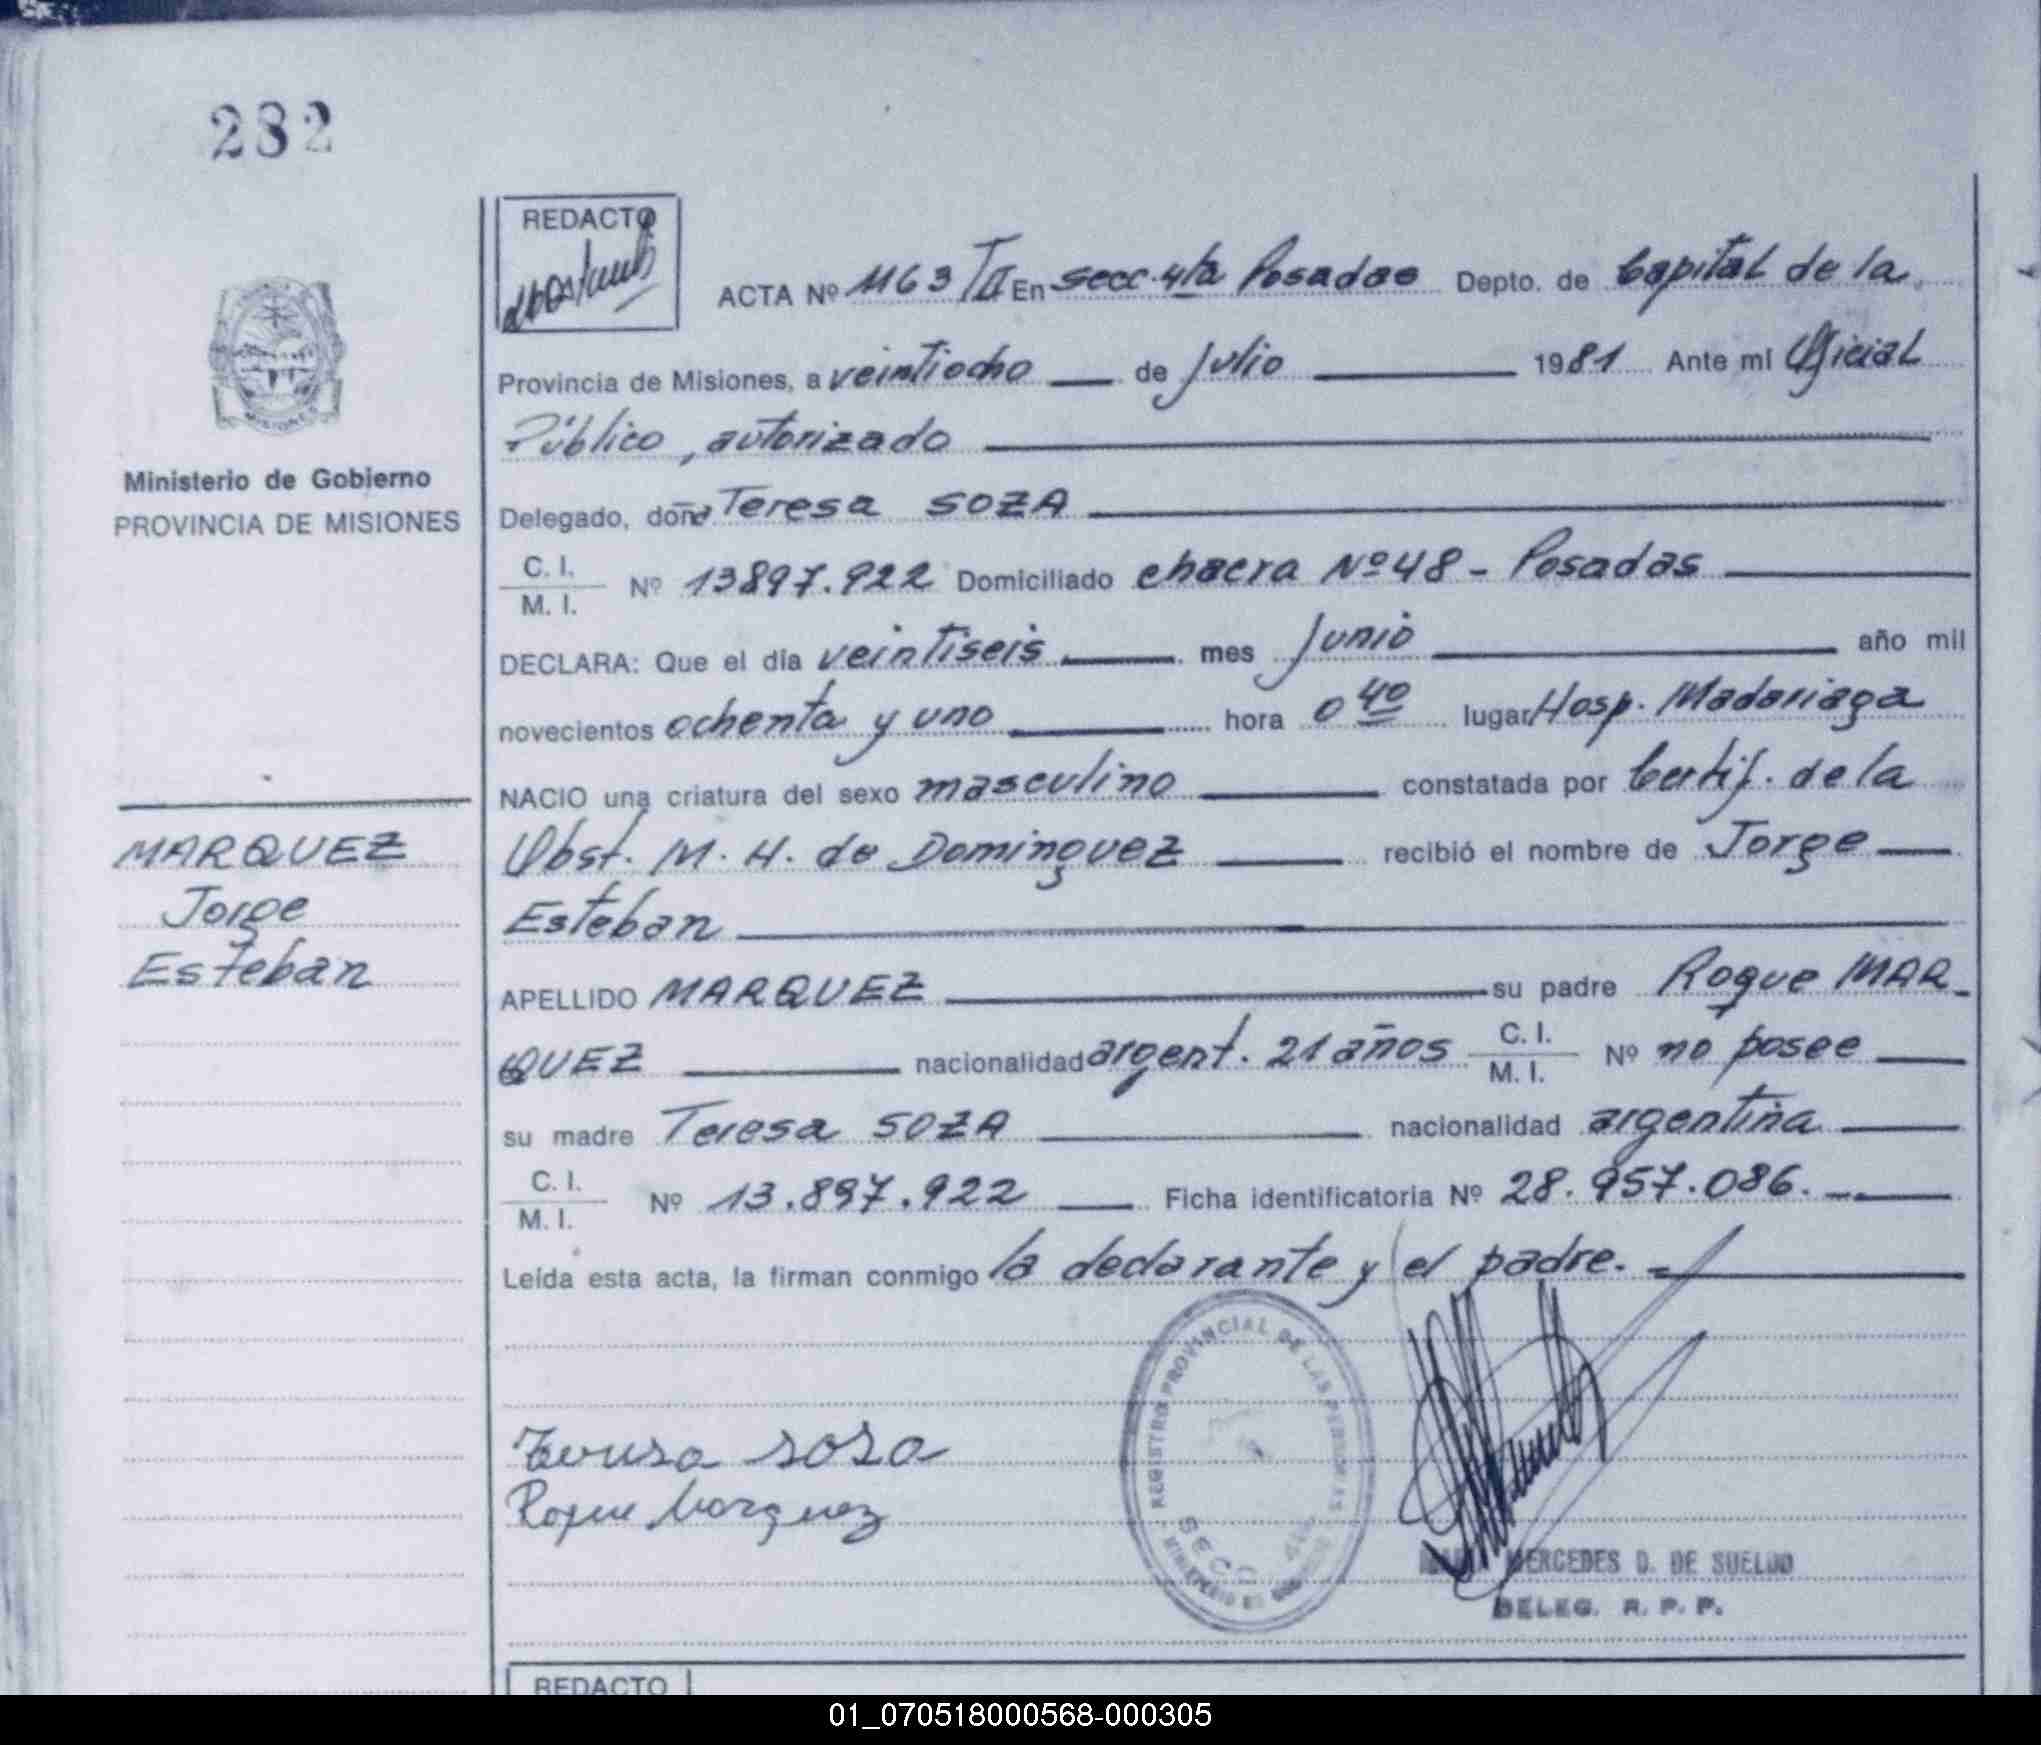 282
REDACTO
ACTA Nº 1163/II En secc. 4ta Posadas Depto. de Capital de la
Provincia de Misiones, a veintiocho de julio 1981 Ante mi Oficial
Público, autorizado
Ministerio de Gobierno
PROVINCIA DE MISIONES
Delegado, doña Teresa SOZA
C. I.
M. I.
Nº 13897.922 Domiciliado chacra Nº 48 - Posadas
DECLARA: Que el día veintiseis mes Junio año mil
novecientos ochenta y uno hora 0 40 lugar Hosp. Madariaga
NACIO una criatura del sexo masculino constatada por Certif. de la
Obst. M. H. de Dominguez recibió el nombre de Jorge
Esteban
MARQUEZ
Jorge
Esteban
APELLIDO MARQUEZ su padre Roque MAR-
QUEZ nacionalidad argent. 21 años C. I. M. I. Nº no posee
su madre Teresa SOZA nacionalidad argentina
C. I.
M. I.
Nº 13.897.922 Ficha identificatoria Nº 28.957.086.
Leída esta acta, la firman conmigo la declarante y el padre.
REGISTRO PROVINCIAL DE LAS PERSONAS
SECC.
Teresa sosa
Roque Marquez
MERCEDES D. DE SUELDO
DELEG. R. P. P.
REDACTO
01_070518000568-000305